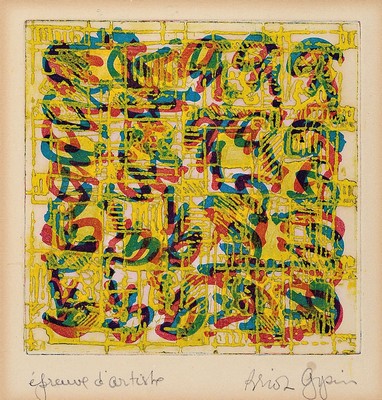 épreuve d'artiste Brion Gysin